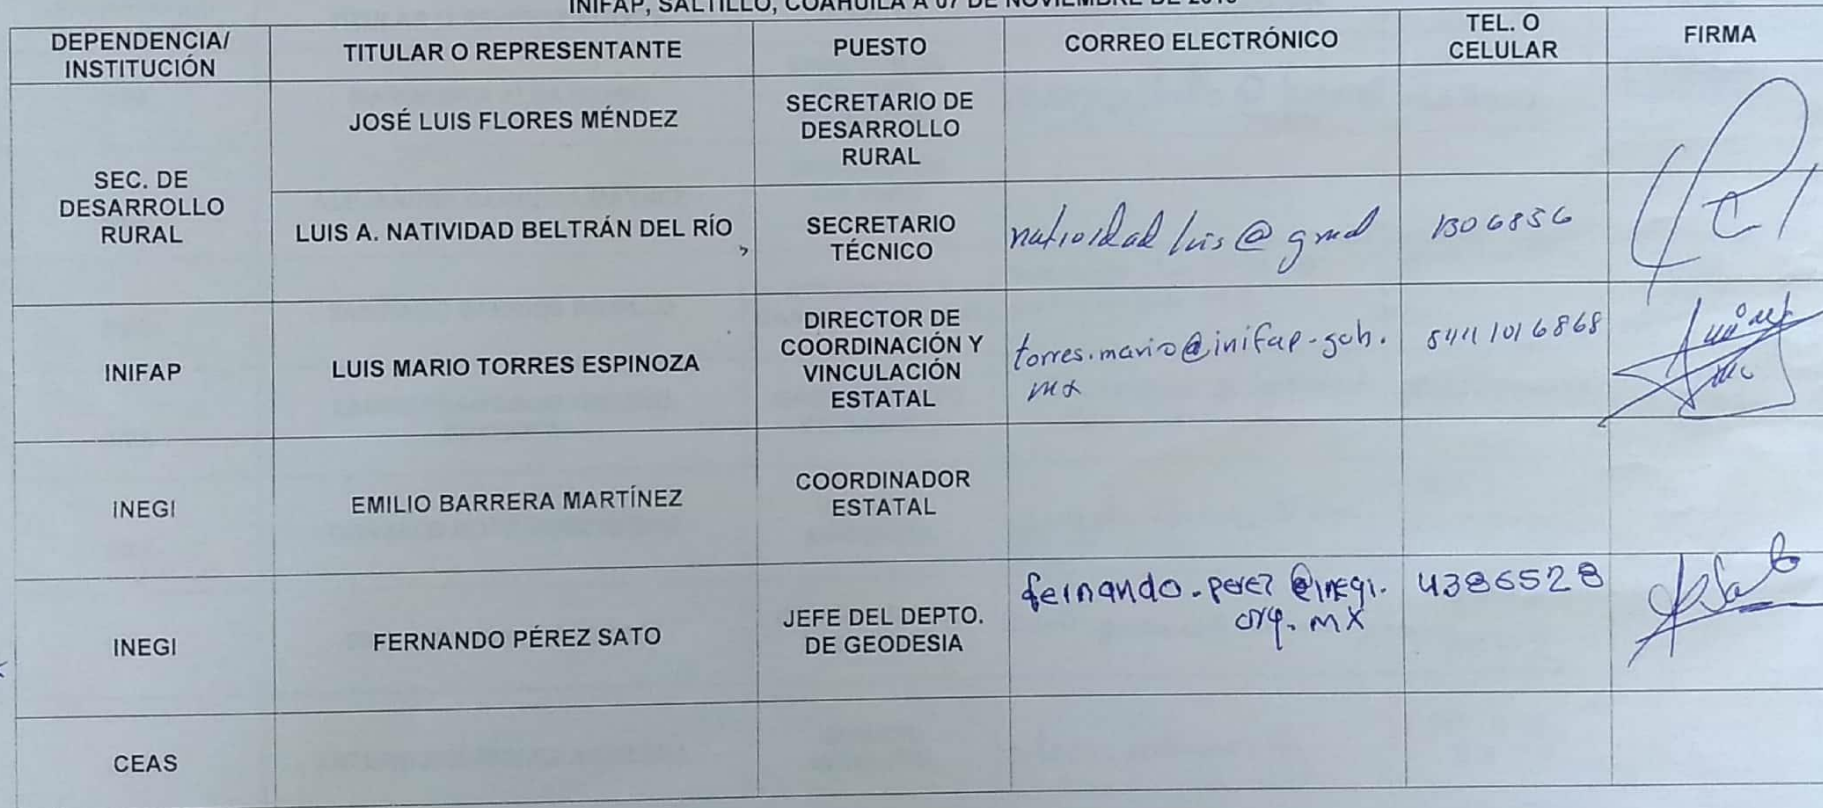 INIFAP, SALTILLO, COAHUILA A 07 DE NOVIEMBRE DE
DEPENDENCIA/
INSTITUCIÓN
TITULAR O REPRESENTANTE
PUESTO
CORREO ELECTRÓNICO
TEL. O
CELULAR
FIRMA
SEC. DE
DESARROLLO
RURAL
JOSÉ LUIS FLORES MÉNDEZ
SECRETARIO DE
DESARROLLO
RURAL
LUIS A. NATIVIDAD BELTRÁN DEL RÍO
SECRETARIO
TÉCNICO
natividad luis @ gmal
1306856
INIFAP
LUIS MARIO TORRES ESPINOZA
DIRECTOR DE
COORDINACIÓN Y
VINCULACIÓN
ESTATAL
torres.mario@inifap.gob.
mx
INEGI
EMILIO BARRERA MARTÍNEZ
COORDINADOR
ESTATAL
INEGI
FERNANDO PÉREZ SATO
JEFE DEL DEPTO.
DE GEODESIA
fernando.perez@inegi.
org.mx
4386528
CEAS